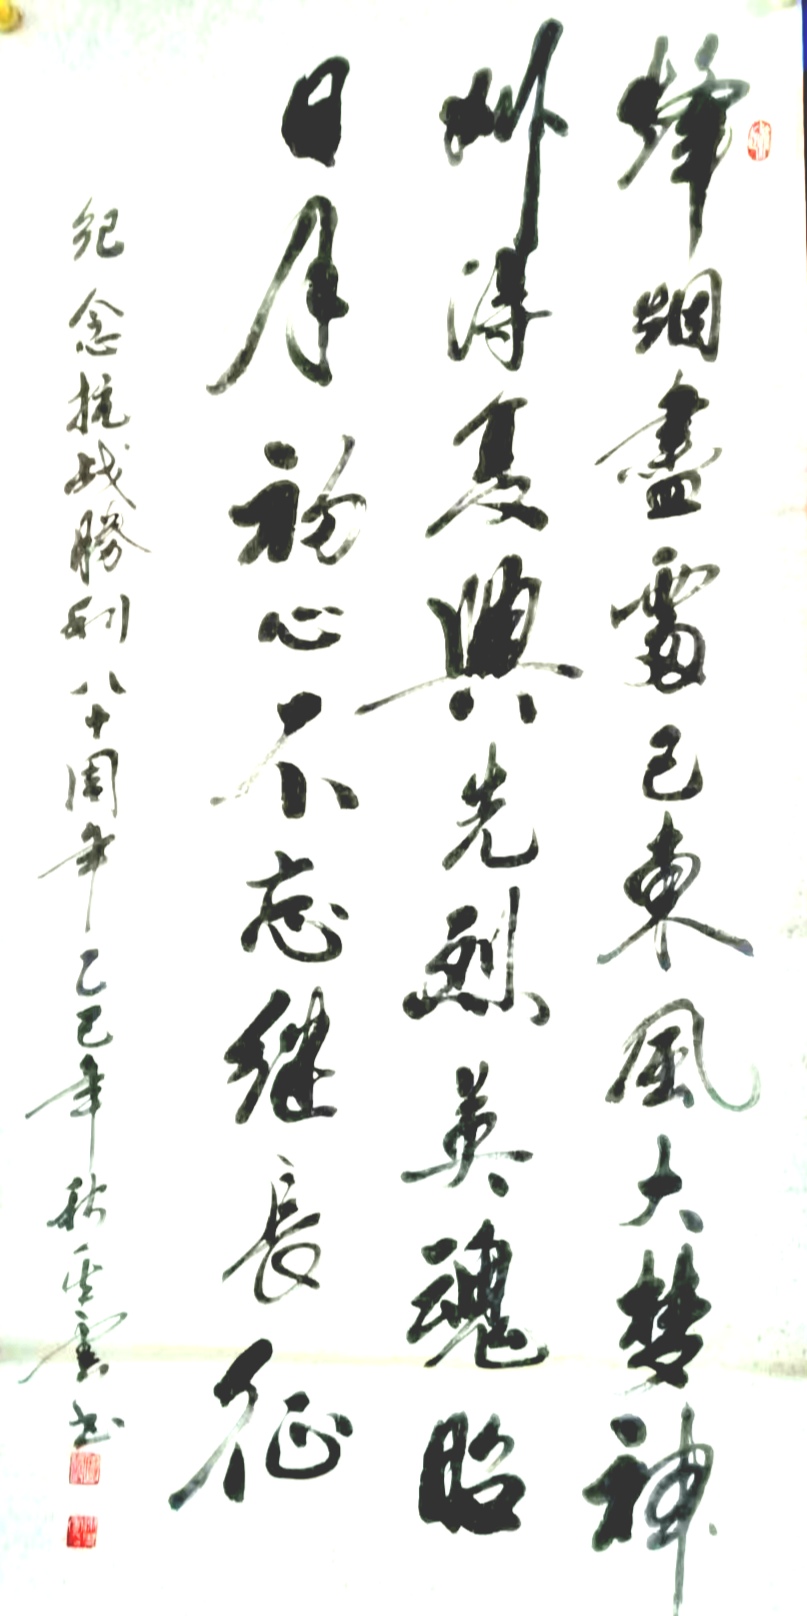 烽烟盡處已東風大梦神
州得复興先烈英魂昭
日月初心不忘继長征
纪念抗战勝利八十周年乙巳年秋
书